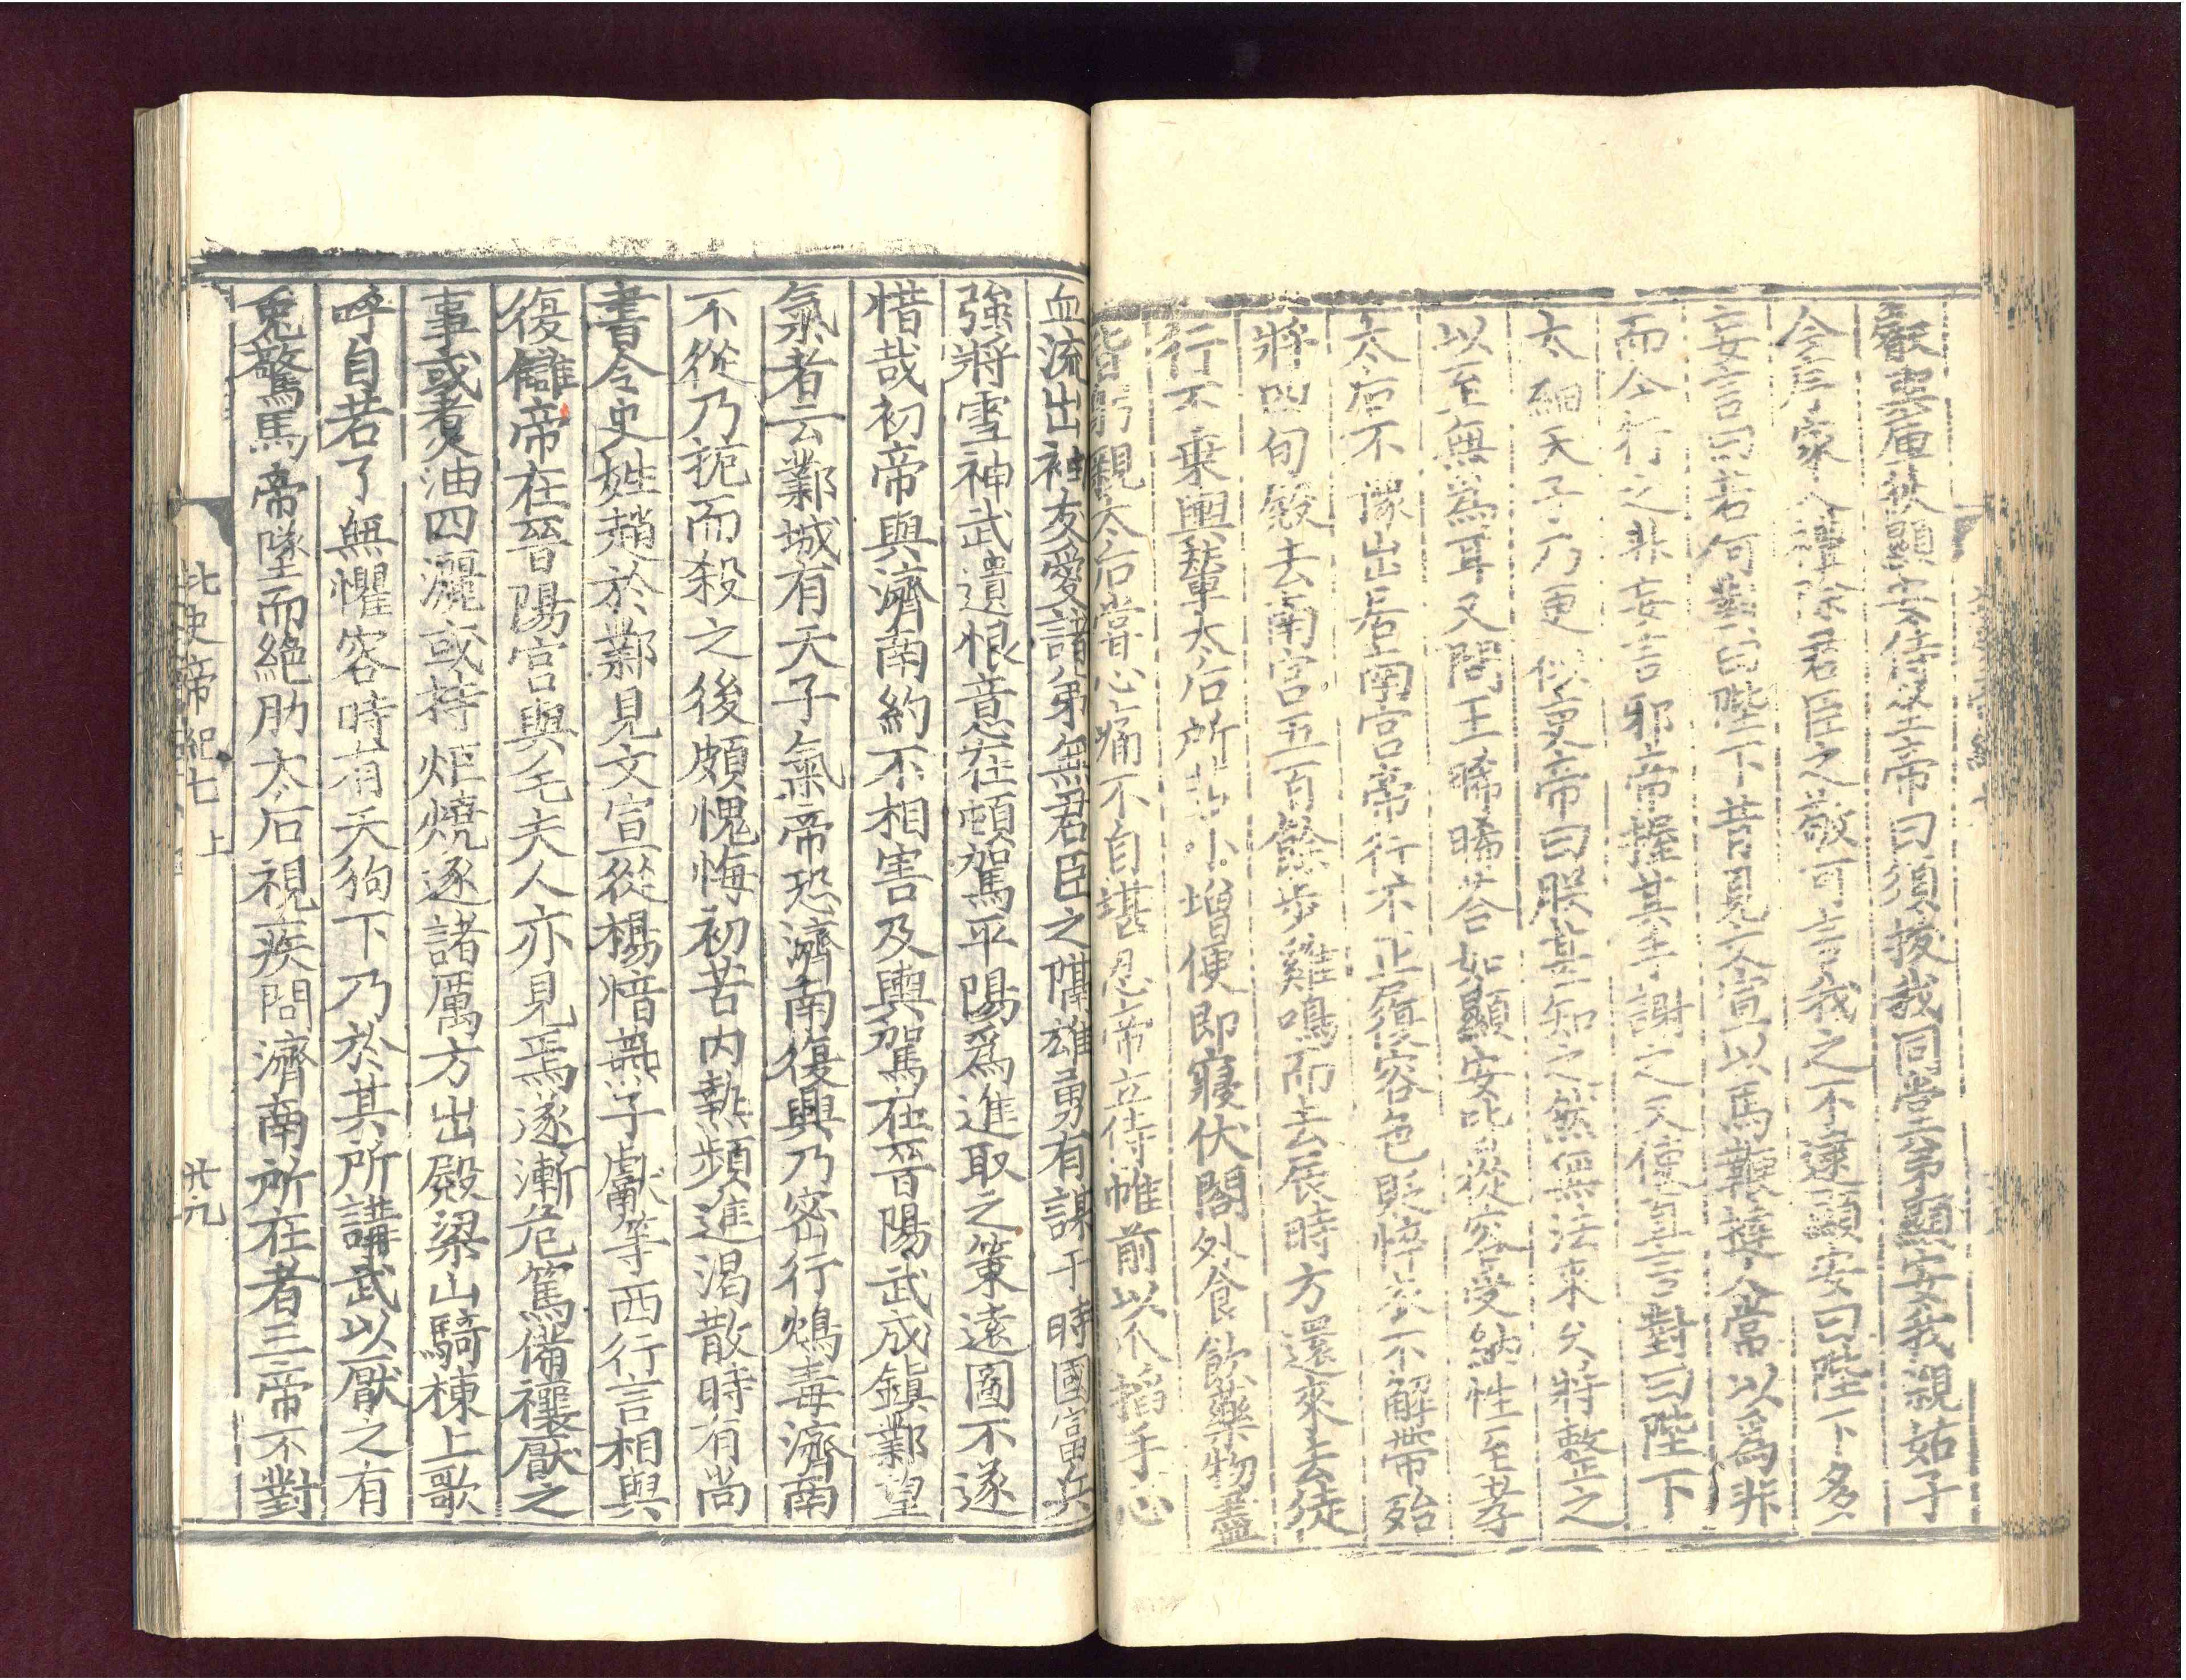 嚴與厙狄顯安侍坐帝曰須拔我同堂弟顯安我親姑子
今序家人禮除君臣之敬可言我之不逮顯安曰陛下多
妄言曰若何對曰陛下昔見文宣以馬鞭撻人常以爲非
而今行之非妄言邪帝握其手謝之又使直言對曰陛下
太細天子乃更似吏帝曰朕甚知之然無法來久將整之
以至無爲耳又問王晞晞荅如顯安皆從容受納性至孝
太后不豫出居南宮帝行不正履容色貶悴衣不解帶殆
將四旬殿去南宮五百餘步雞鳴而去辰時方還來去徒
行不乘輿輦太后所苦小增便即寢伏閤外食飲藥物盡
皆躬親太后嘗心痛不自堪忍帝立侍帷前以爪掐手心
血流出袖友愛諸弟無君臣之隔雄勇有謀于時國富兵
強將雪神武遺恨意在頓駕平陽爲進取之策遠圖不遂
惜哉初帝與濟南約不相害及輿駕在晉陽武成鎮鄴望
氣者云鄴城有天子氣帝恐濟南復興乃密行鴆毒濟南
不從乃扼而殺之後頗愧悔初苦内熱頻進湯散時有尚
書令史姓趙於鄴見文宣從楊愔燕子獻等西行言相與
復讎帝在晉陽宮與毛夫人亦見焉遂漸危篤備禳厭之
事或煑油四灑或持炬燒逐諸厲方出殿梁山騎棟上歌
呼自若了無懼容時有天狗下乃於其所講武以厭之有
兎驚馬帝墜而絶肋太后視疾問濟南所在者三帝不對
北史帝紀七 上 廿九